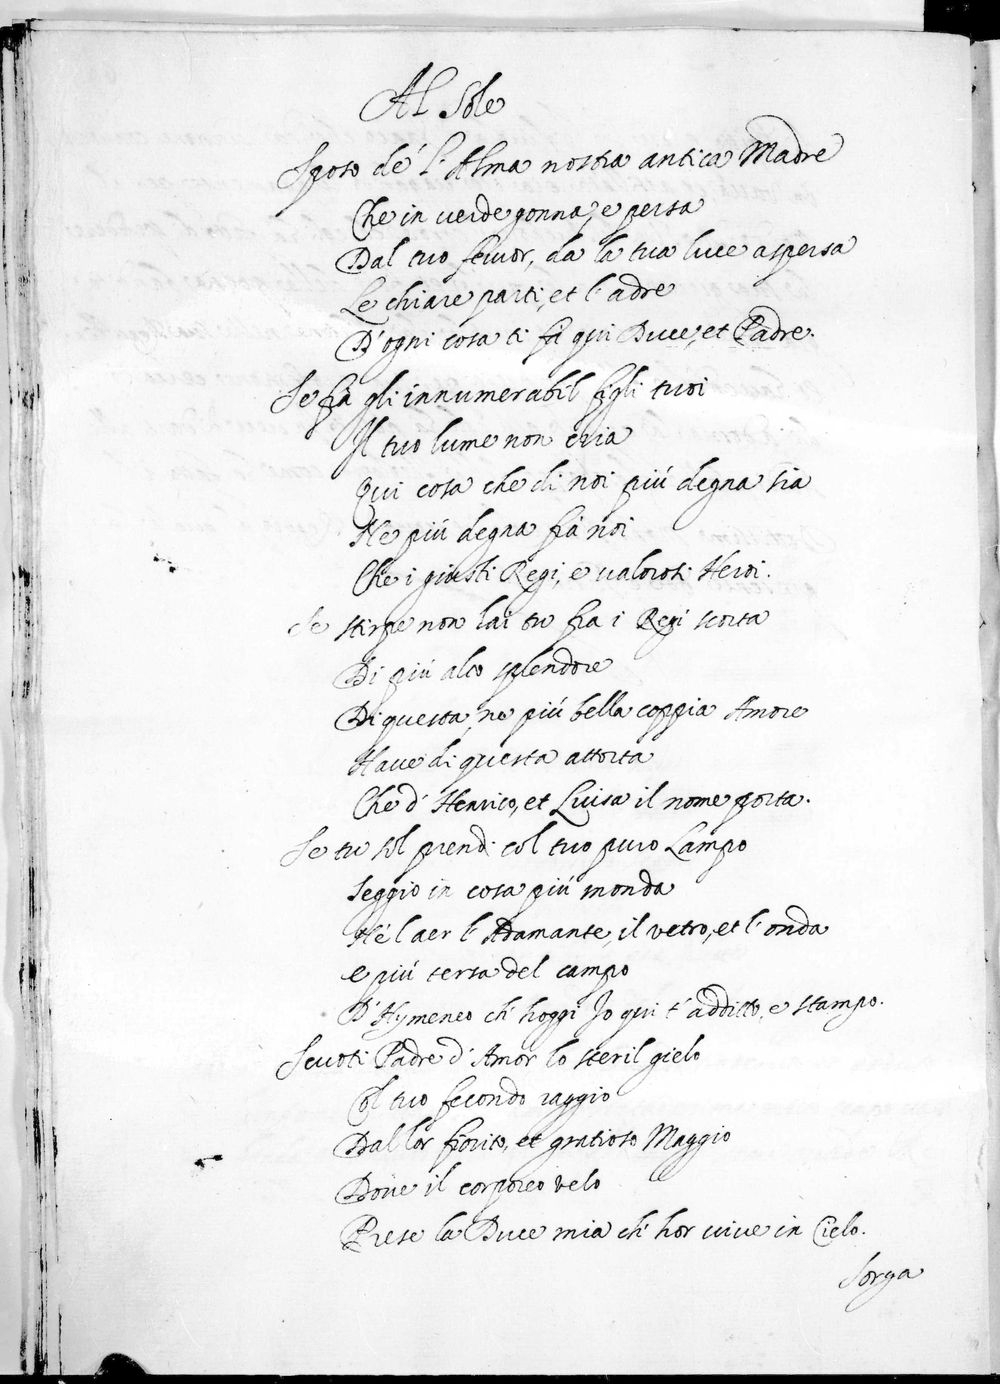 Al Sole
Sposo de' l'Alma nostra antica Madre
Che in verde gonna, e persa
Dal tuo feruor, da la tua luce aspersa
Le chiare parti, et l'adre
D'ogni cosa ti fà qui Duce, et Padre.
Se frà gli innumerabil figli tuoi
Il tuo lume non cria
Qui cosa che di noi più degna sia
Ne più degna frà noi
Che i giusti Regi, e valorosi Heroi.
Se stirpe non hai tu fra i Regi scorta
Di più alto splendore
Di questa, ne più bella coppia Amore
Haue di questa attorta
Che d'Henrico, et Luisa il nome porta.
Se tu sol prendi col tuo puro Lampo
Seggio in cosa più monda
Né l'aer l'Adamante, il vetro, et l'onda
E più tersa del campo
D'Hymeneo ch'hoggi Io qui t'additto, e stampo.
Scuoti Padre d'Amor lo steril gielo
Col tuo fecondo raggio
Dal lor fiorito, et gratioso Maggio
Doue il corporeo velo
Prese la Duce mia ch'hor viue in Cielo.
Sorga